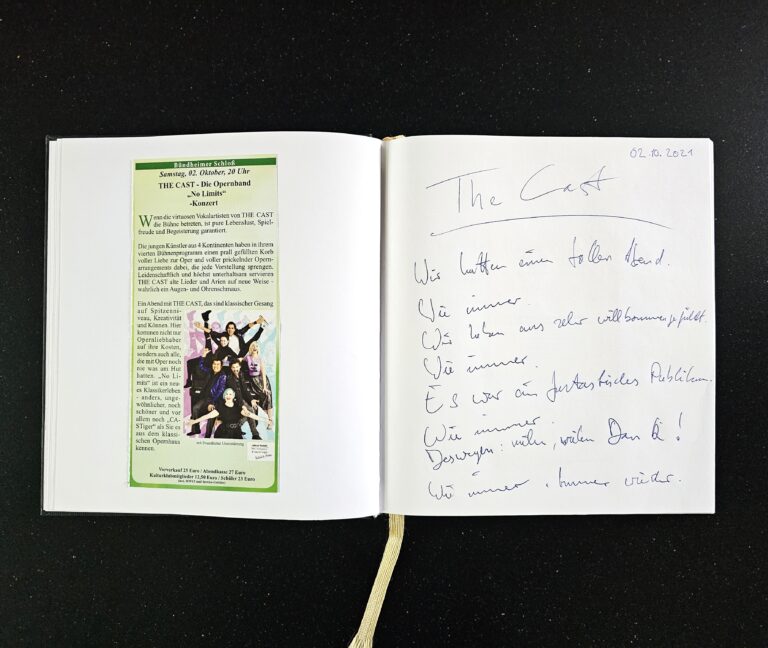 Bündheimer Schloß
Samstag, 02. Oktober, 20 Uhr
THE CAST - Die Opernband
„No Limits“
-Konzert
Wenn die virtuosen Vokalartisten von THE CAST
die Bühne betreten, ist pure Lebenslust, Spiel-
freude und Begeisterung garantiert.
Die jungen Künstler aus 4 Kontinenten haben in ihrem
vierten Bühnenprogramm einen prall gefüllten Korb
voller Liebe zur Oper und voller prickelnder Opern-
arrangements dabei, die jede Vorstellung sprengen.
Leidenschaftlich und höchst unterhaltsam servieren
THE CAST alte Lieder und Arien auf neue Weise -
wahrlich ein Augen- und Ohrenschmaus.
Ein Abend mit THE CAST, das sind klassischer Gesang
auf Spitzenni-
veau, Kreativität
und Können. Hier
kommen nicht nur
Opernliebhaber
auf ihre Kosten,
sondern auch alle,
die mit Oper noch
nie was am Hut
hatten. „No Li-
mits“ ist ein neu-
es Klassikerleben
- anders, unge-
wöhnlicher, noch
schöner und vor
allem noch „CA-
STiger“ als Sie es
aus dem klassi-
schen Opernhaus
kennen.
mit freundlicher Unterstützung
Vorverkauf 25 Euro / Abendkasse 27 Euro
Kulturklubmitglieder 12,50 Euro / Schüler 23 Euro
02.10.2021
The Cast
Wir hatten einen tollen Abend.
Wie immer.
Wir haben uns sehr willkommen gefühlt.
Wie immer.
Es war ein fantastisches Publikum.
Wie immer.
Deswegen: vielen, vielen Dank!
Wie immer. Immer wieder.